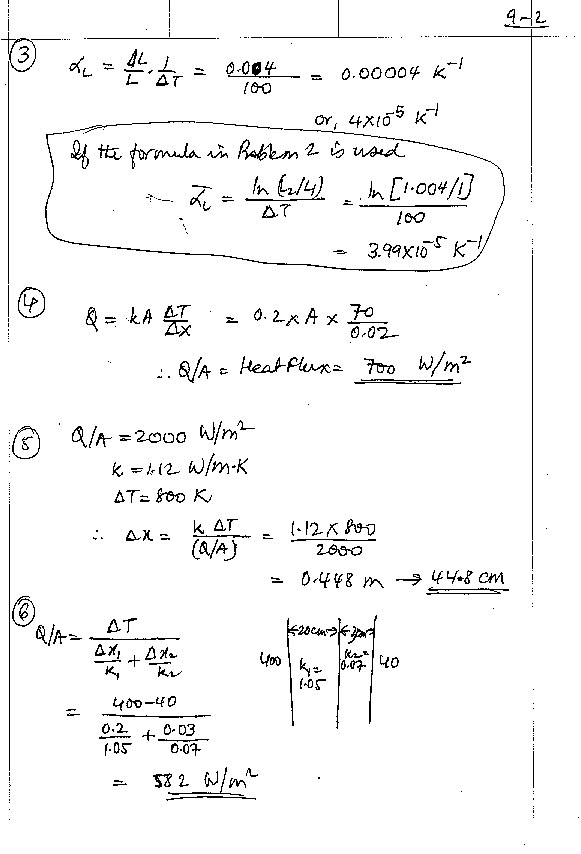 9-2
③ α_L = ΔL/L · 1/ΔT = 0.004/100 = 0.00004 K⁻¹
or, 4×10⁻⁵ K⁻¹
If the formula in Problem 2 is used
ᾱ_L = ln(L₂/L₁)/ΔT = ln[1.004/1]/100
= 3.99×10⁻⁵ K⁻¹
④ Q = kA ΔT/Δx = 0.2 × A × 70/0.02
∴ Q/A = Heat Flux = 700 W/m²
⑤ Q/A = 2000 W/m²
k = 1.12 W/m·K
ΔT = 800 K
∴ Δx = k ΔT/(Q/A) = 1.12 × 800/2000
= 0.448 m → 44.8 cm
⑥ Q/A = ΔT/(Δx₁/k₁ + Δx₂/k₂)
20cm 3cm
400 k₁ = 1.05 k₂ = 0.07 40
= 400-40/(0.2/1.05 + 0.03/0.07)
= 582 W/m²